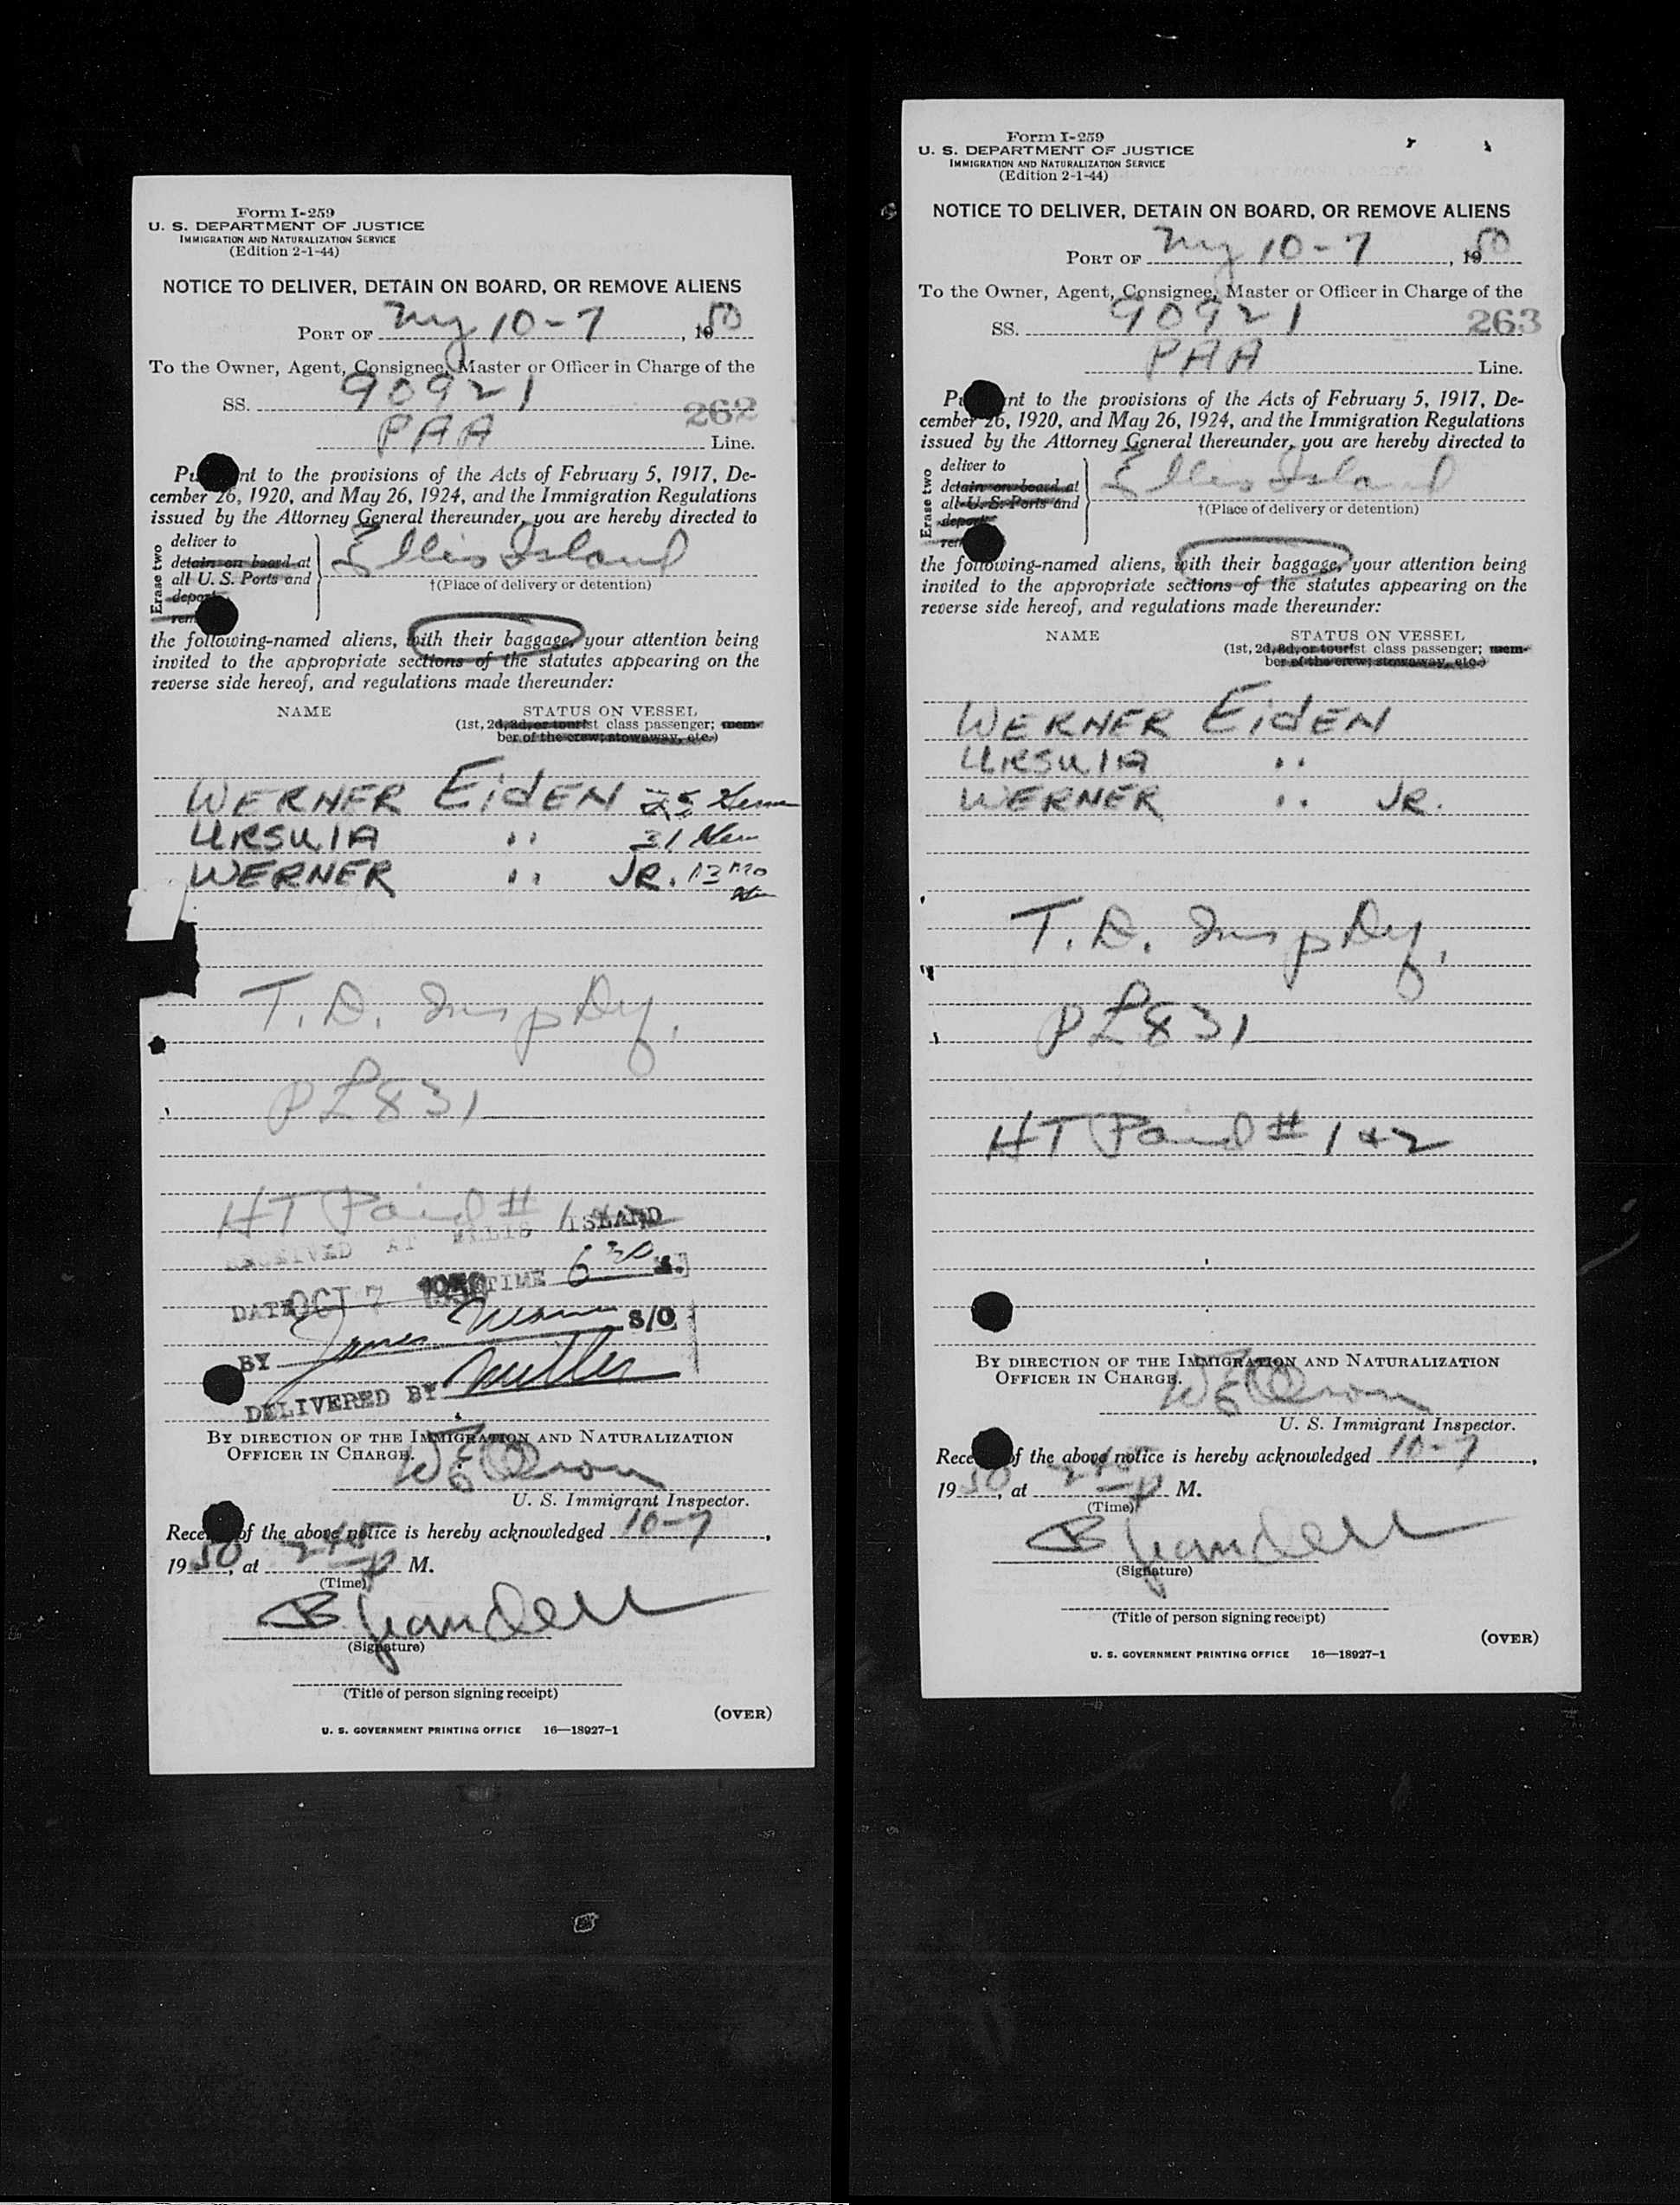 Form I-259
U. S. DEPARTMENT OF JUSTICE
IMMIGRATION AND NATURALIZATION SERVICE
(Edition 2-1-44)
NOTICE TO DELIVER, DETAIN ON BOARD, OR REMOVE ALIENS
PORT OF NY 10-7, 1950
To the Owner, Agent, Consignee, Master or Officer in Charge of the
SS. 90921
262
PAA Line.
nt to the provisions of the Acts of February 5, 1917, De-
cember 26, 1920, and May 26, 1924, and the Immigration Regulations
issued by the Attorney General thereunder, you are hereby directed to
Erase two
deliver to
detain on board at
all U. S. Ports and
Ellis Island
†(Place of delivery or detention)
the following-named aliens, with their baggage, your attention being
invited to the appropriate sections of the statutes appearing on the
reverse side hereof, and regulations made thereunder:
NAME STATUS ON VESSEL
(1st, 2d, 3d, or tourist class passenger; mem-
ber of the crew; stowaway, etc.)
WERNER EidEN
URSUlA " 31
WERNER " JR. 13 mo
T. D. Insp Dy.
HT Paid #
RECEIVED AT ELLIS ISLAND
DATE OCT 7 1950 TIME 6 30
BY James S/O
DELIVERED BY Miller
BY DIRECTION OF THE IMMIGRATION AND NATURALIZATION
OFFICER IN CHARGE.
U. S. Immigrant Inspector.
of the above notice is hereby acknowledged 10-7,
1950, at 245 P M.
(Time)
(Signature)
(Title of person signing receipt)
(OVER)
U. S. GOVERNMENT PRINTING OFFICE 16—18927-1
Form I-259
U. S. DEPARTMENT OF JUSTICE
IMMIGRATION AND NATURALIZATION SERVICE
(Edition 2-1-44)
NOTICE TO DELIVER, DETAIN ON BOARD, OR REMOVE ALIENS
PORT OF NY 10-7, 1950
To the Owner, Agent, Consignee, Master or Officer in Charge of the
SS. 90921
263
PAA Line.
nt to the provisions of the Acts of February 5, 1917, De-
cember 26, 1920, and May 26, 1924, and the Immigration Regulations
issued by the Attorney General thereunder, you are hereby directed to
Erase two
deliver to
detain on board at
all U. S. Ports and
Ellis Island
†(Place of delivery or detention)
the following-named aliens, with their baggage, your attention being
invited to the appropriate sections of the statutes appearing on the
reverse side hereof, and regulations made thereunder:
NAME STATUS ON VESSEL
(1st, 2d, 3d, or tourist class passenger; mem-
ber of the crew; stowaway, etc.)
WERNER EidEN
URSUlA "
WERNER " JR.
T. D. Insp Dy.
HT Paid # 1 + 2
BY DIRECTION OF THE IMMIGRATION AND NATURALIZATION
OFFICER IN CHARGE.
U. S. Immigrant Inspector.
of the above notice is hereby acknowledged 10-7,
1950, at 245 P M.
(Time)
(Signature)
(Title of person signing receipt)
(OVER)
U. S. GOVERNMENT PRINTING OFFICE 16—18927-1